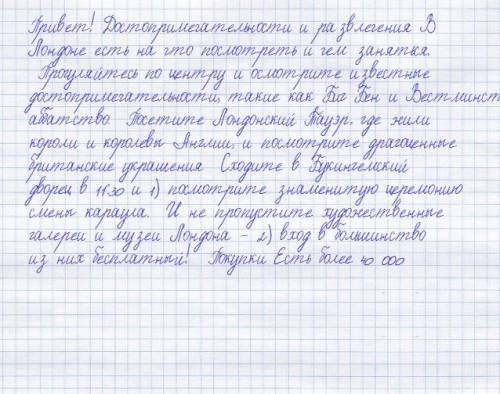 Привет! Достопримечательности и развлечения В
Лондоне есть на что посмотреть и чем заняться.
Прогуляйтесь по центру и осмотрите известные
достопримечательности, такие как Биг Бен и Вестминст
аббатство Посетите Лондонский Тауэр, где жили
короли и королевы Англии, и посмотрите драгоценные
британские украшения Сходите в Букингемский
дворец в 11:30 и 1) посмотрите знаменитую церемонию
смены караула. И не пропустите художественные
галереи и музеи Лондона - 2) вход в большинство
из них бесплатный! Покупки Есть более 40 000